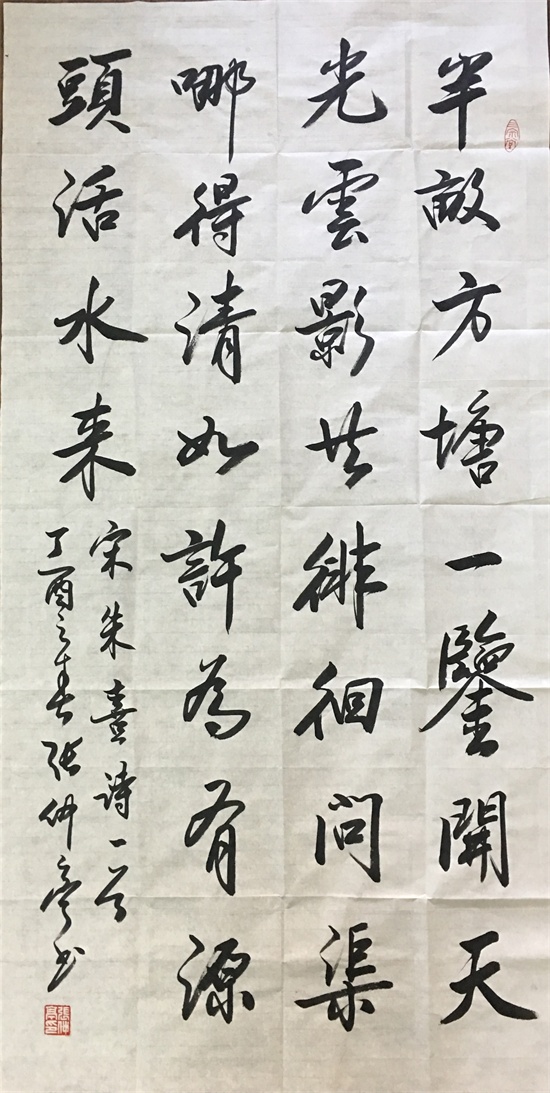 半畝方塘一鑒開天
光雲影共徘徊問渠
哪得清如許為有源
頭活水来
宋朱熹诗一首
丁酉之春张仲亭书
張仲亭印